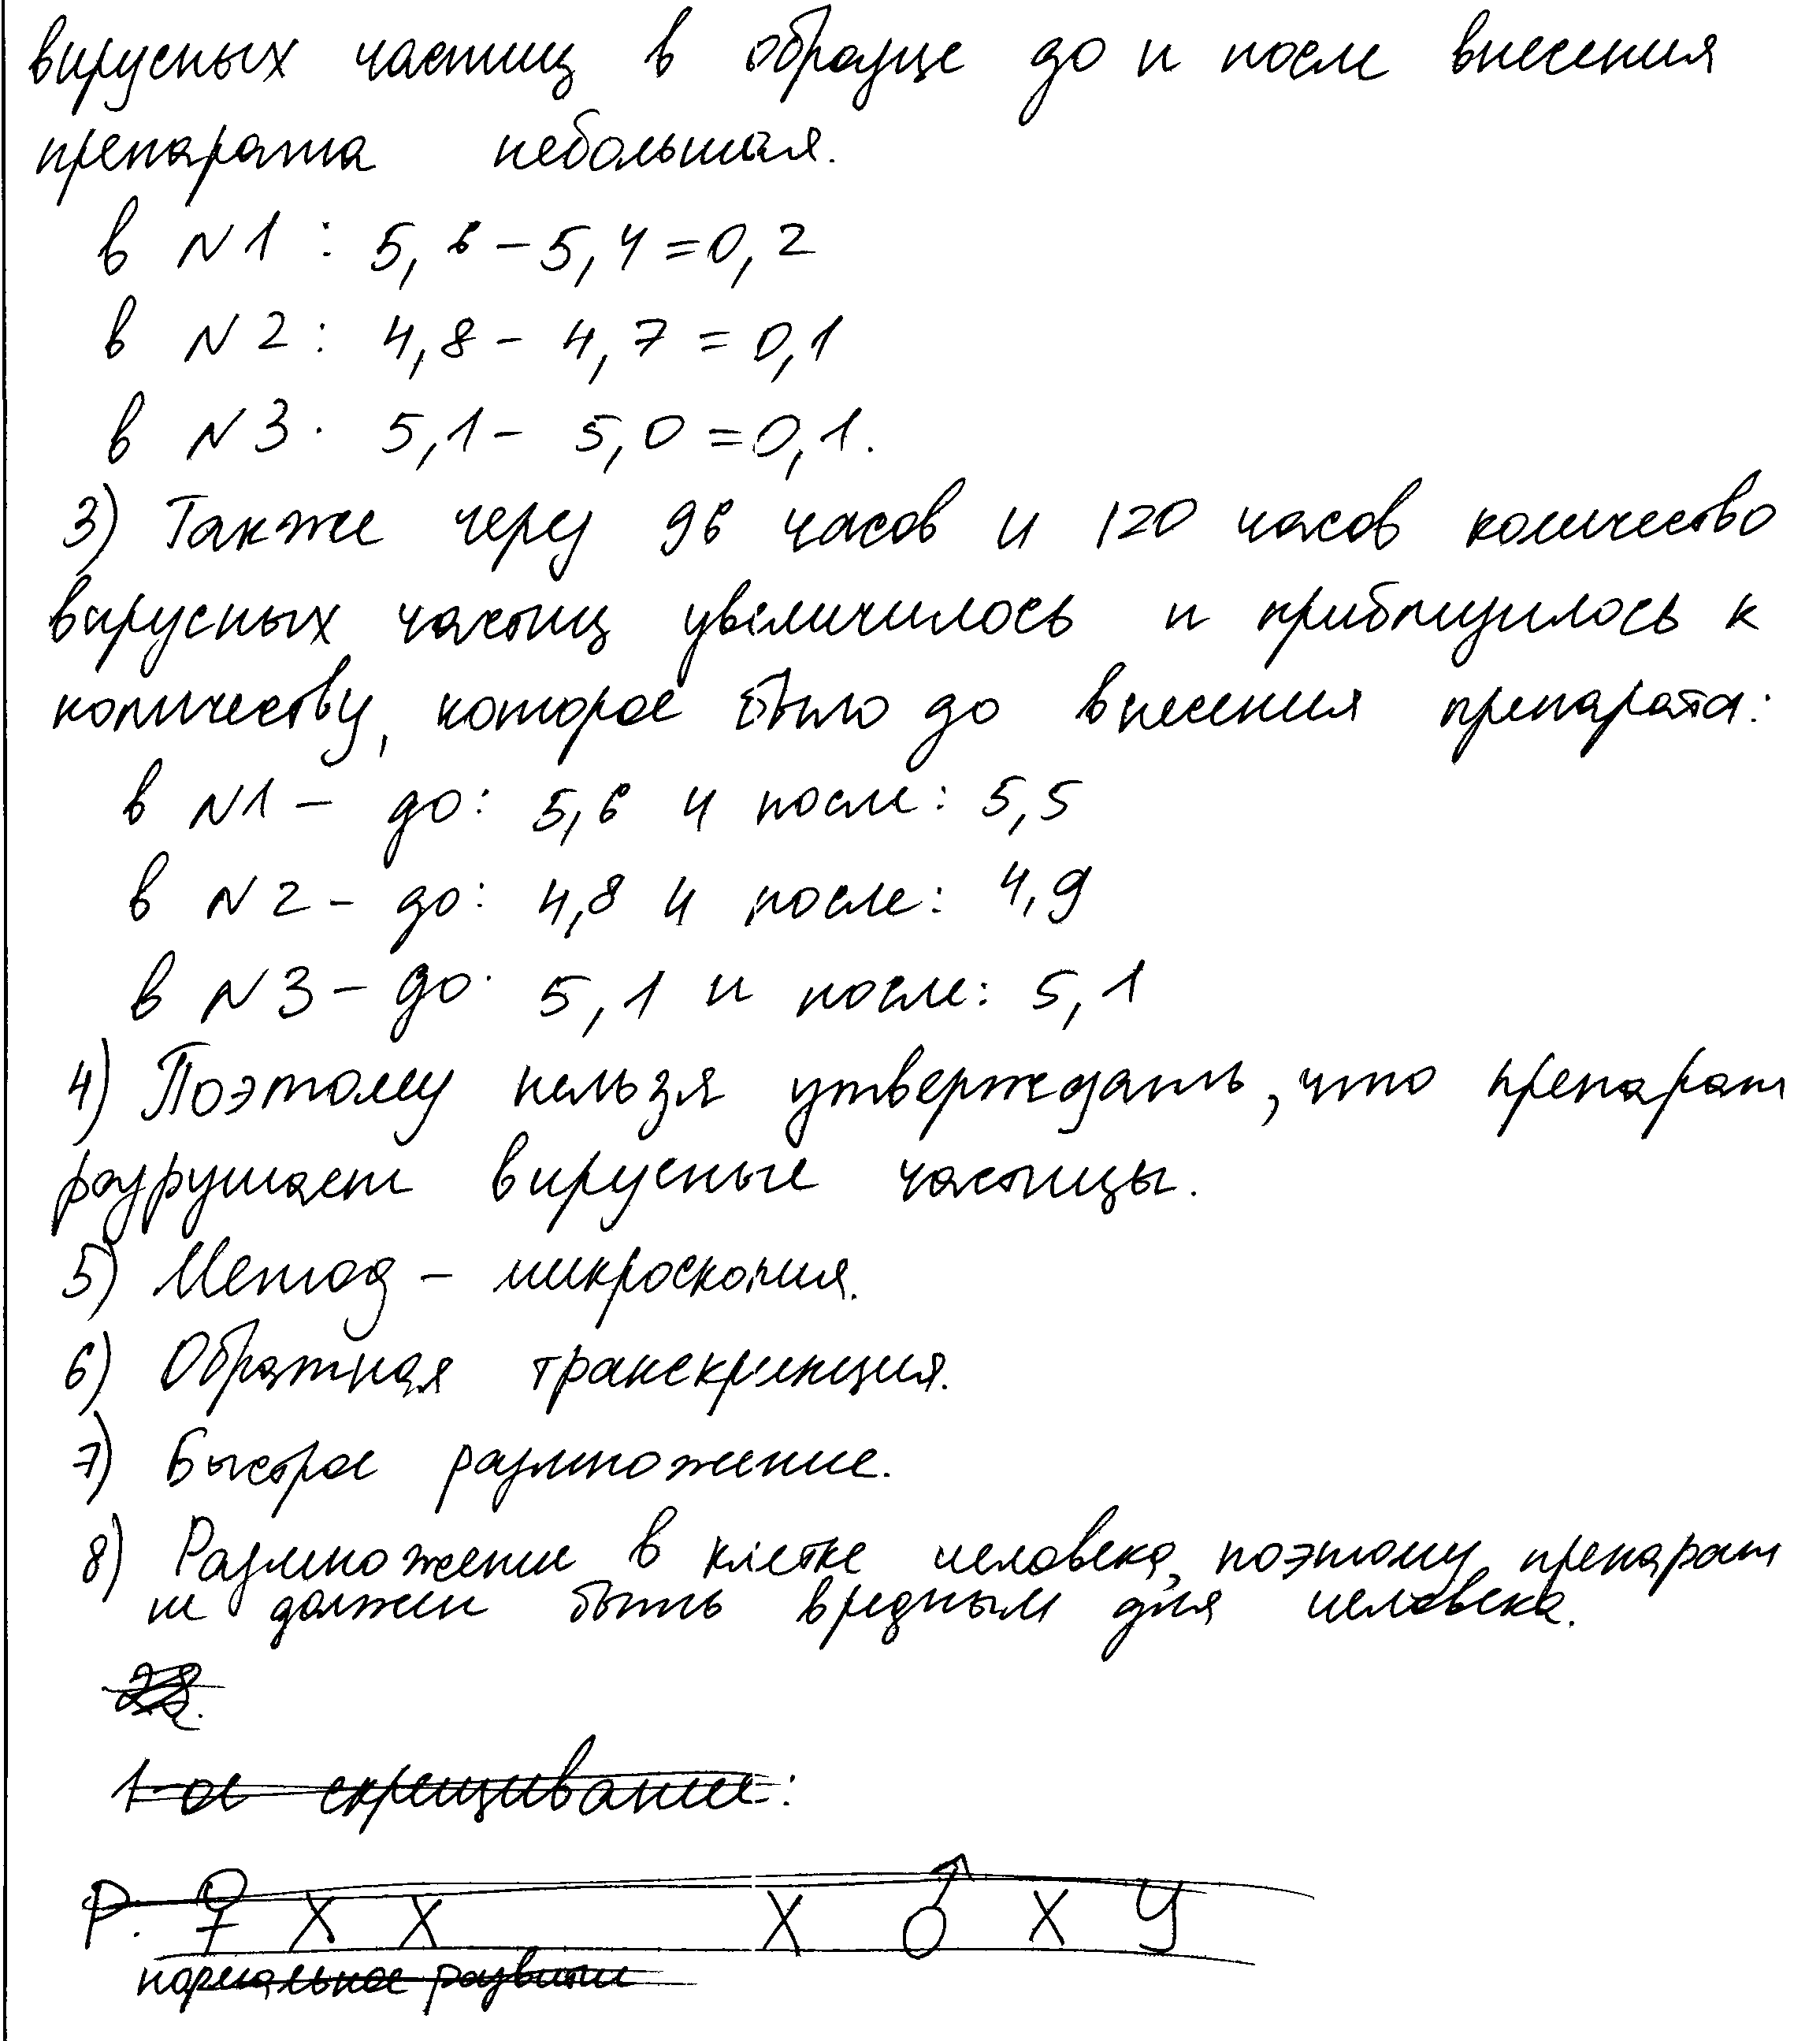 вирусных частиц в образце до и после внесения
препарата небольшая.
в N1 : 5,6 – 5,4 = 0,2
в N2 : 4,8 – 4,7 = 0,1
в N3 . 5,1 – 5,0 = 0,1.
3) Также через 96 часов и 120 часов количество
вирусных частиц увеличилось и приблизилось к
количеству, которое было до внесения препарата:
в N1 – до: 5,6 и после: 5,5
в N2 – до: 4,8 и после: 4,9
в N3 – до: 5,1 и после: 5,1
4) Поэтому нельзя утверждать, что препарат
разрушает вирусные частицы.
5) Метод – микроскопия.
6) Обратная транскрипция.
7) Быстрое размножение.
8) Размножение в клетке человека, поэтому препарат
не должен быть вредным для человека.
28.
1-ое скрещивание:
P: ♀ X X X ♂ X У
нормальное развитие